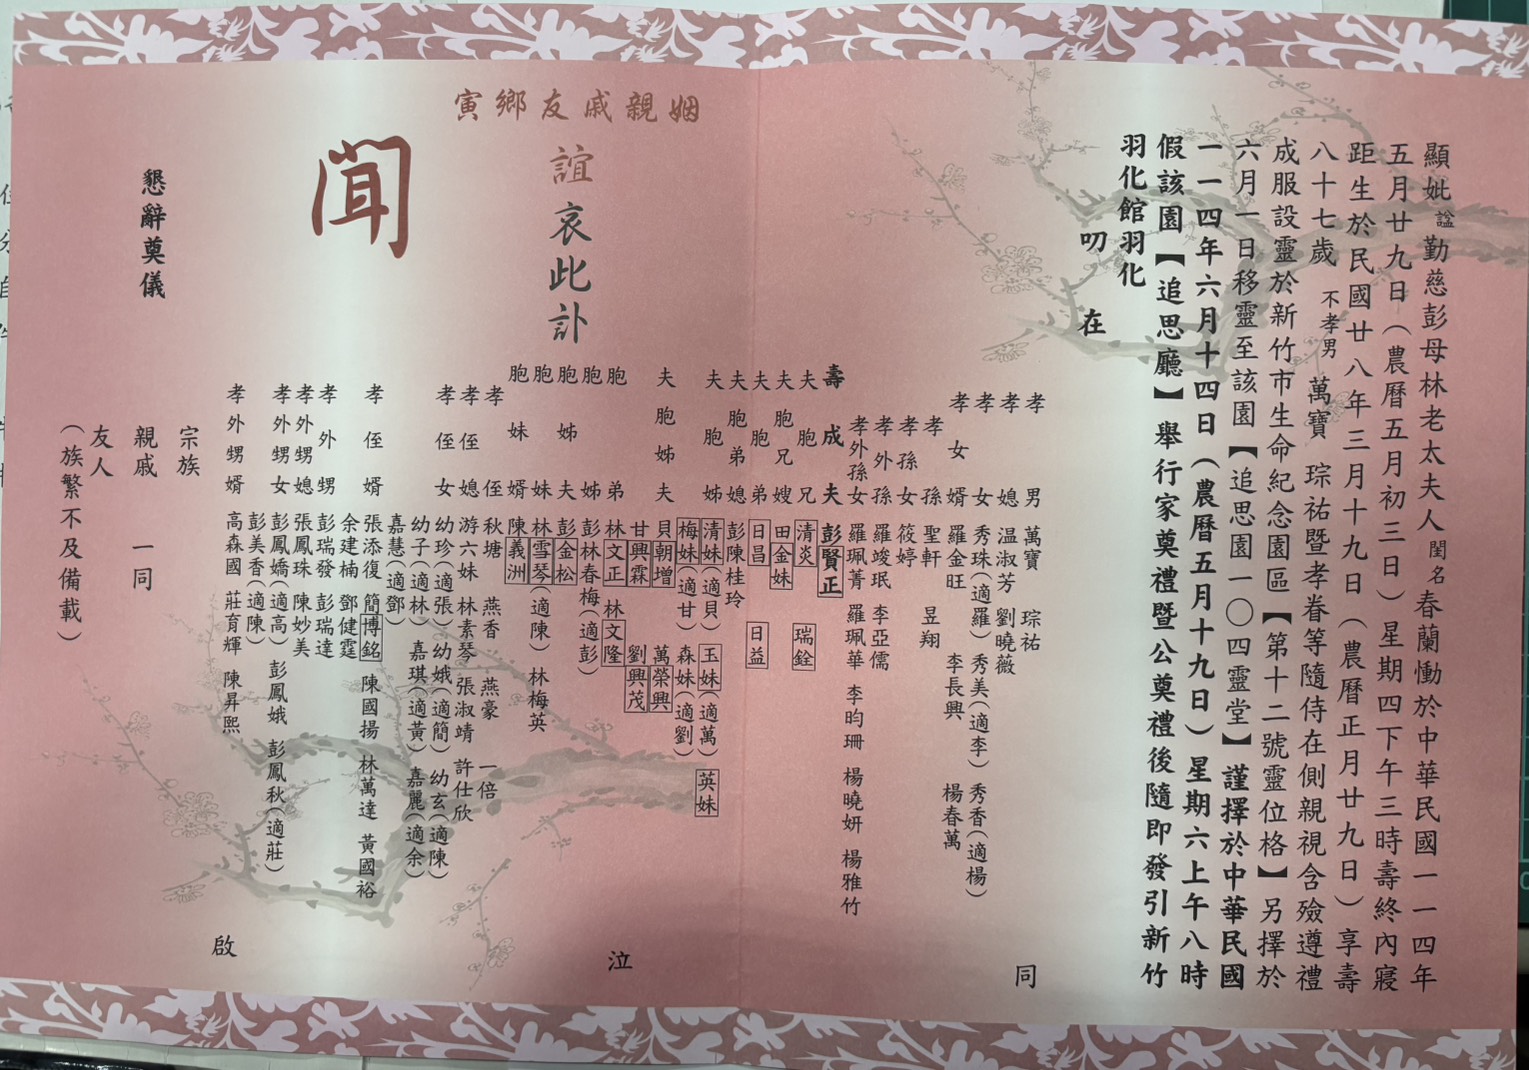 顯妣諡勤慈彭母林老太夫人閨名春蘭慟於中華民國一一四年
五月廿九日（農曆五月初三日）星期四下午三時壽終內寢
距生於民國廿八年三月十九日（農曆正月廿九日）享壽
八十七歲 不孝男 萬寶 琮祐暨孝眷等隨侍在側親視含殮遵禮
成服設靈於新竹市生命紀念園區【第十二號靈位格】另擇於
六月一日移靈至該園【追思園一〇四靈堂】謹擇於中華民國
一一四年六月十四日（農曆五月十九日）星期六上午八時
假該園【追思廳】舉行家奠禮暨公奠禮後隨即發引新竹
羽化館羽化
叨 在
孝男 萬寶 琮祐 同
孝媳 温淑芳 劉曉薇
孝女 秀珠（適羅）秀美（適李）秀香（適楊）
孝女婿 羅金旺 李長興 楊春萬
孝孫 聖軒 昱翔
孝孫女 筱婷
孝外孫 羅竣珉 李亞儒
孝外孫女 羅珮菁 羅珮華 李昀珊 楊曉妍 楊雅竹
壽成夫 彭賢正
夫胞兄 清炎 瑞銓
夫胞兄嫂 田金妹
夫胞弟 日昌 日益
夫胞弟媳 彭陳桂玲
夫胞姊 清妹（適貝）玉妹（適萬）英妹
梅妹（適甘）森妹（適劉）
夫胞姊夫 貝朝增 萬榮興
甘興霖 劉興茂
胞弟 林文正 林文隆 泣
胞姊 彭林春梅（適彭）
胞姊夫 彭金松
胞妹 林雪琴（適陳）林梅英
胞妹婿 陳義洲
孝侄 秋塘 燕香 燕豪 一倍
孝侄媳 游六妹 林素琴 張淑靖 許仕欣
孝侄女 幼珍（適張）幼娥（適簡）幼玄（適陳）
幼子（適林）嘉琪（適黃）嘉麗（適余）
嘉慧（適鄧）
孝侄婿 張添復 簡博銘 陳國揚 林萬達 黃國裕
余建楠 鄧健霆
孝外甥 彭瑞發 彭瑞達
孝外甥媳 張鳳珠 陳妙美
孝外甥女 彭鳳嬌（適高）彭鳳娥 彭鳳秋（適莊）
彭美香（適陳）
孝外甥婿 高森國 莊育輝 陳昇熙
姻親戚友鄉寅
誼哀此訃
聞
宗族 啟
親戚 一同
友人
（族繁不及備載）
懇辭奠儀